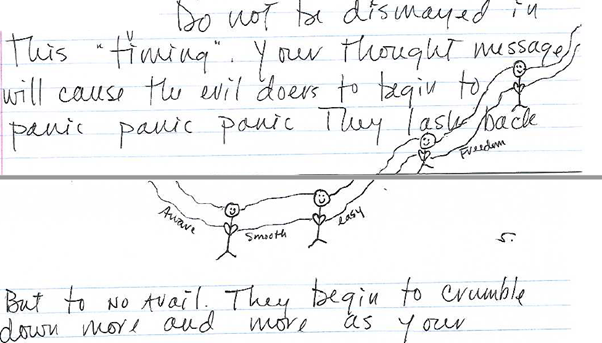 Do not be dismayed in
This "timing". Your thought message
will cause the evil doers to begin to
panic panic panic They lash back
Freedom
Aware
Smooth
easy
5.
But to NO Avail. They begin to crumble
down more and more as your